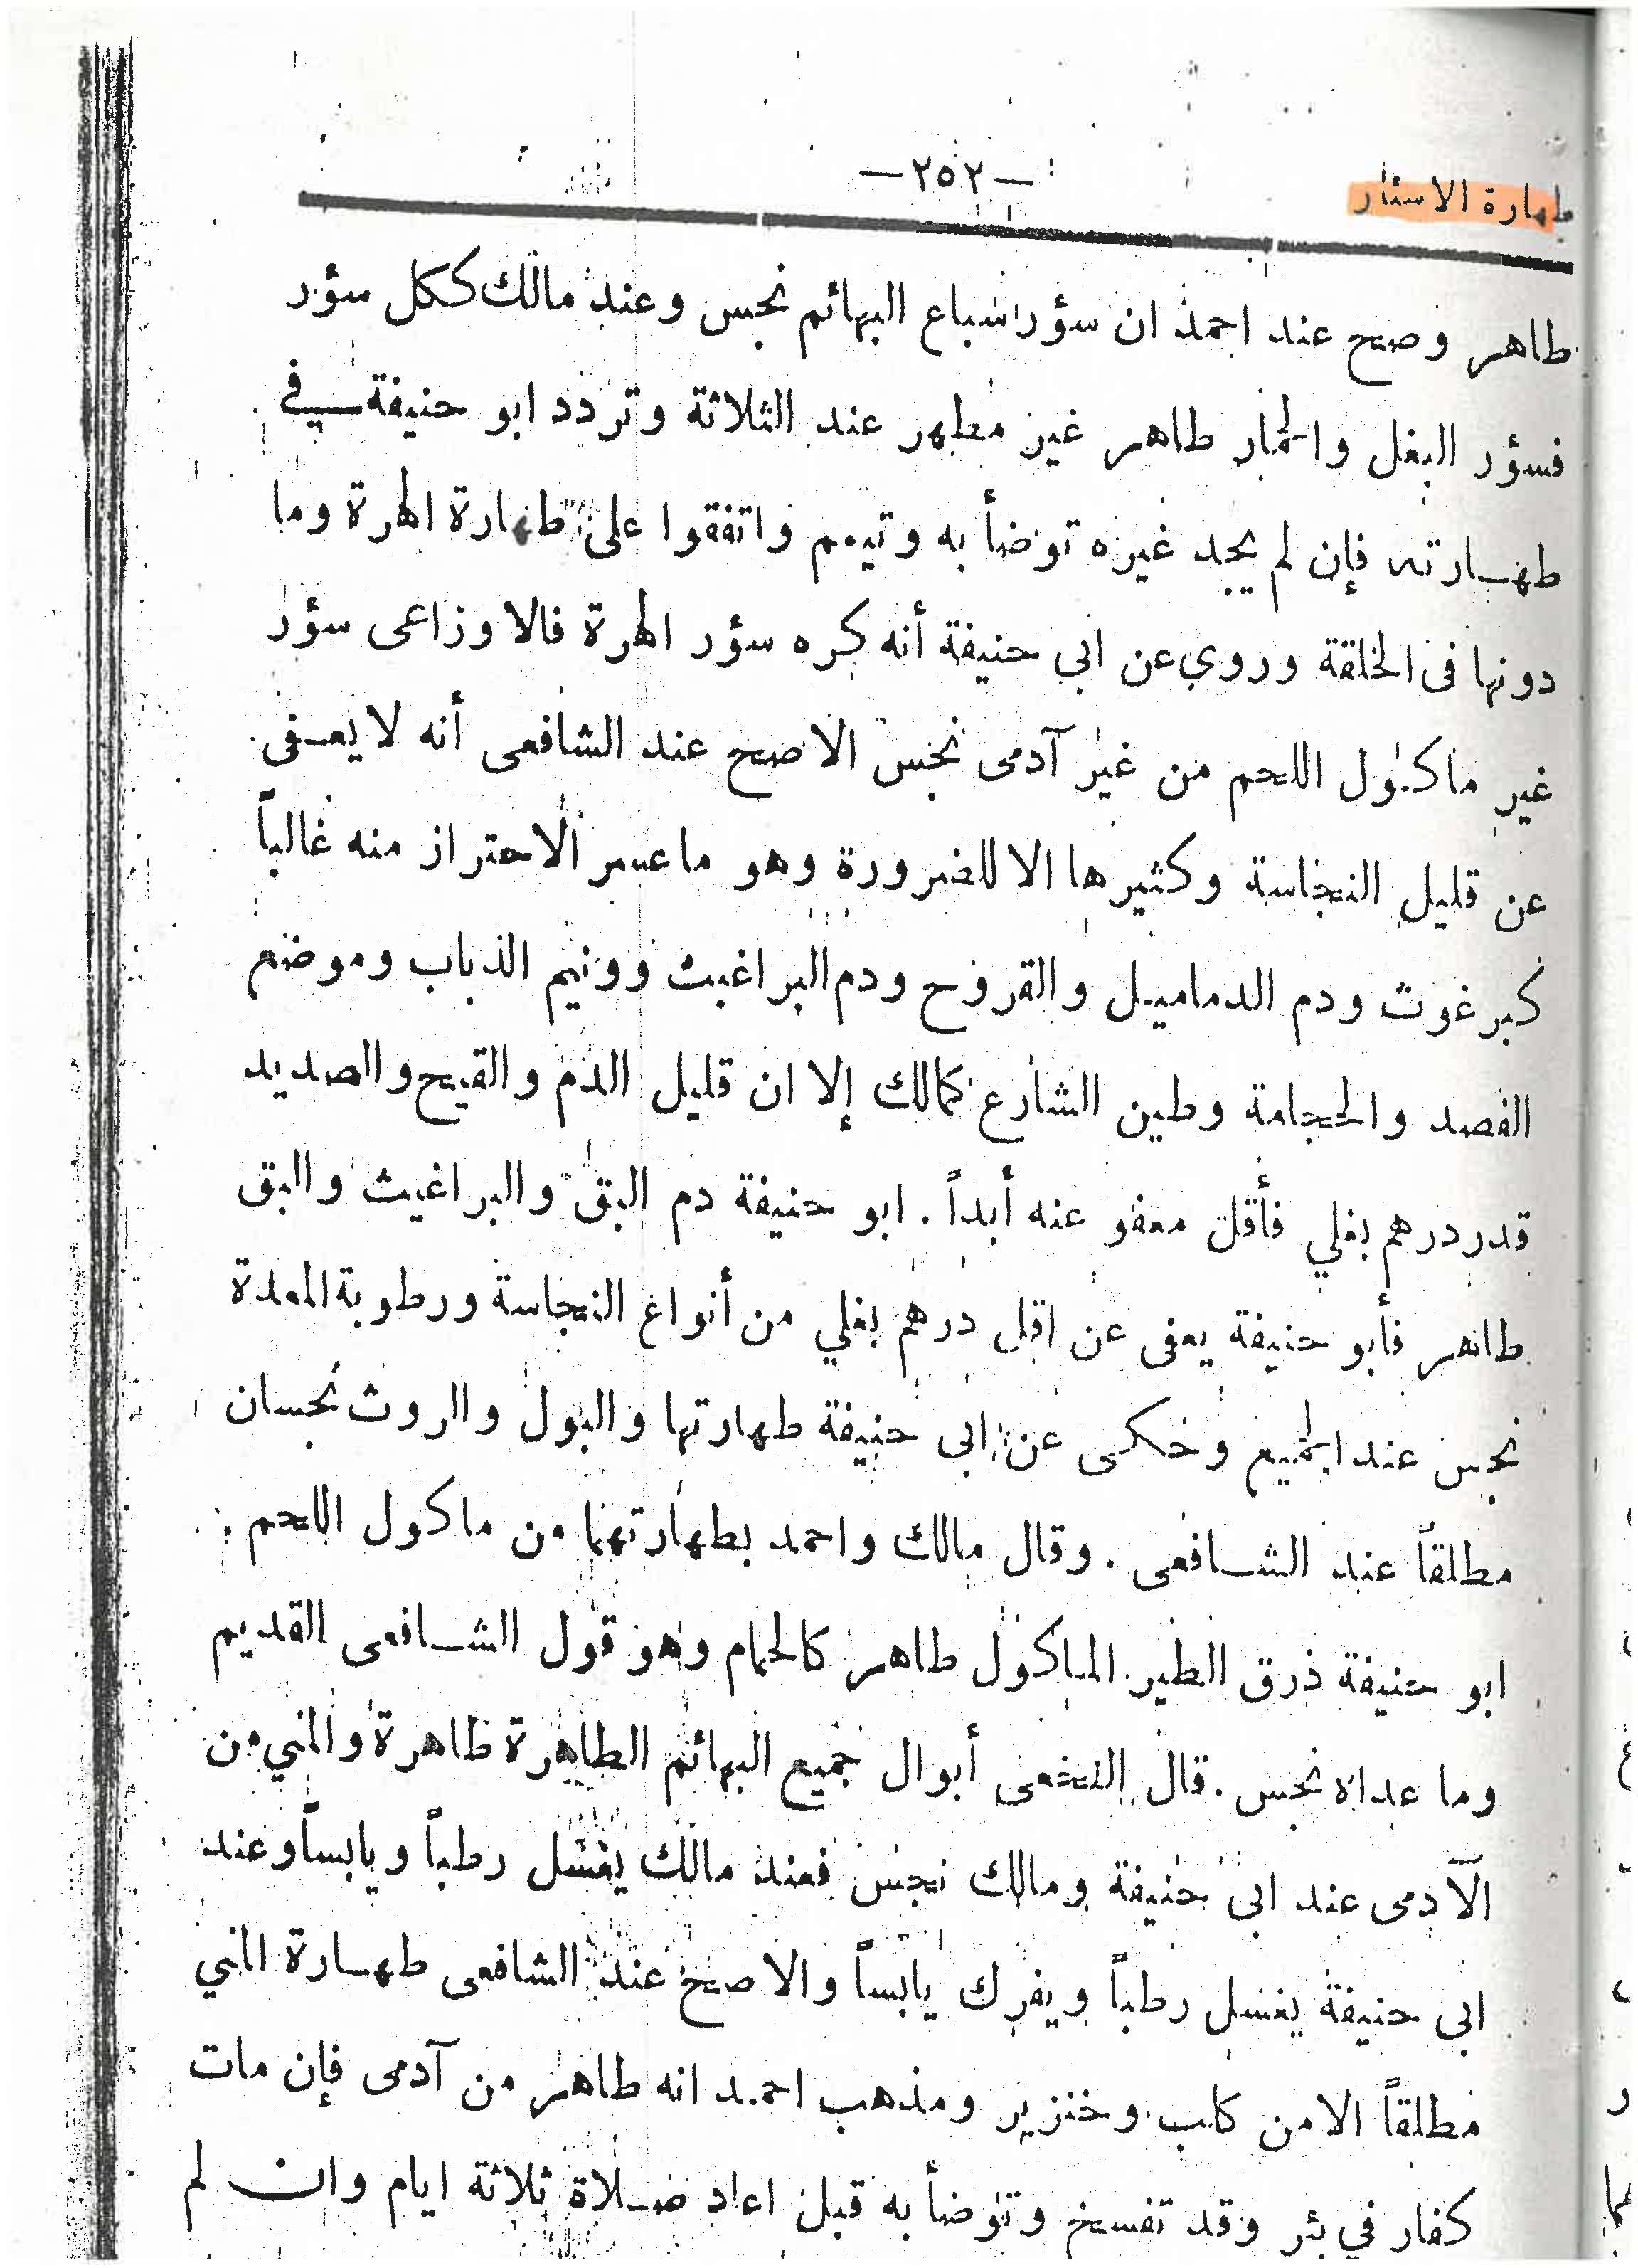 طهارة الاسئار
—٢٥٢—
طاهر وصح عند احمد ان سؤر سباع البهائم نجس وعند مالك ككل سؤر
فسؤر البغل والحمار طاهر غير مطهر عند الثلاثة وتردد ابو حنيفة في
طهارته فإن لم يجد غيره توضأ به وتيمم واتفقوا على طهارة الهرة وما
دونها فى الخلقة وروي عن ابي حنيفة أنه كره سؤر الهرة فالاوزاعى سؤر
غير ماكول اللحم من غير آدمى نجس الاصح عند الشافعى أنه لا يعفى
عن قليل النجاسة وكثيرها الا للضرورة وهو ما عسر الاحتراز منه غالباً
كبرغوث ودم الدماميل والقروح ودم البراغيث وونيم الذباب وموضع
الفصد والحجامة وطين الشارع كمالك إلا ان قليل الدم والقيح والصديد
قدر درهم بغلي فأقل معفو عنه أبداً . ابو حنيفة دم البق والبراغيث والبق
طاهر فأبو حنيفة يعفى عن اقل درهم بغلي من أنواع النجاسة ورطوبة المعدة
نجس عند الجميع وحكى عن ابى حنيفة طهارتها والبول والروث نجسان
مطلقاً عند الشافعى . وقال مالك واحمد بطهارتهما من ماكول اللحم :
ابو حنيفة ذرق الطير الماكول طاهر كالحمام وهو قول الشافعى القديم
وما عداه نجس . قال النخعى أبوال جميع البهائم الطاهرة طاهرة والمني من
الآدمى عند ابى حنيفة ومالك نجس فعند مالك يغسل رطباً ويابساً وعند
ابى حنيفة يغسل رطباً ويفرك يابساً والاصح عند الشافعى طهارة المني
مطلقاً الا من كلب وخنزير ومذهب احمد انه طاهر من آدمى فإن مات
كفار في بئر وقد تفسخ وتوضأ به قبل اعاد صلاة ثلاثة ايام وان لم